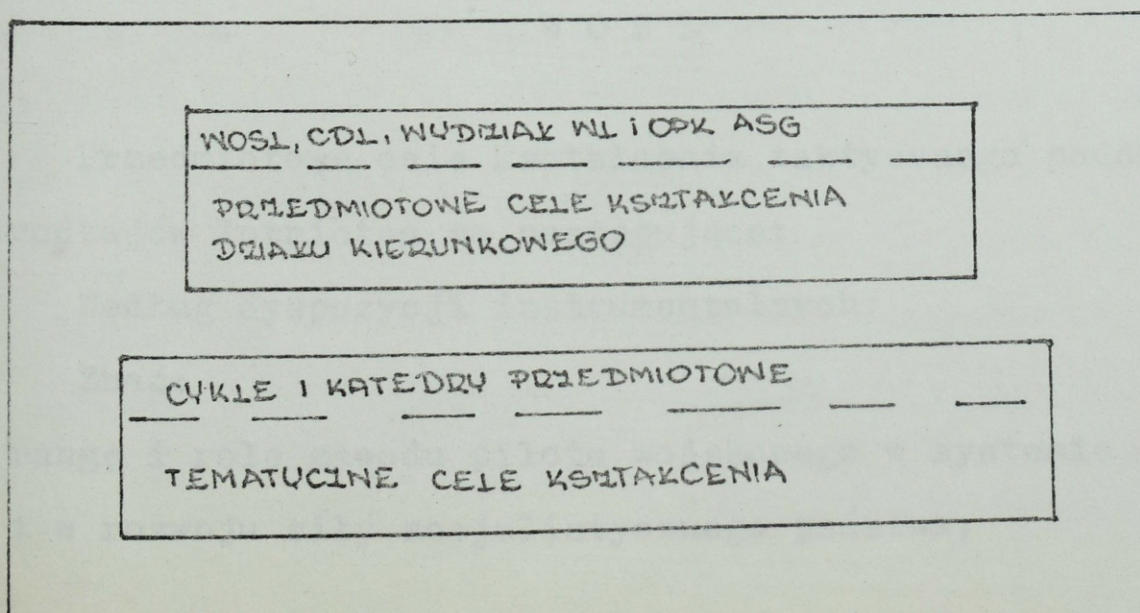 WOSL, CDL, WYDZIAŁ WL i OPK ASG
PRZEDMIOTOWE CELE KSZTAŁCENIA
DZIAŁU KIERUNKOWEGO
CYKLE I KATEDRY PRZEDMIOTOWE
TEMATYCZNE CELE KSZTAŁCENIA